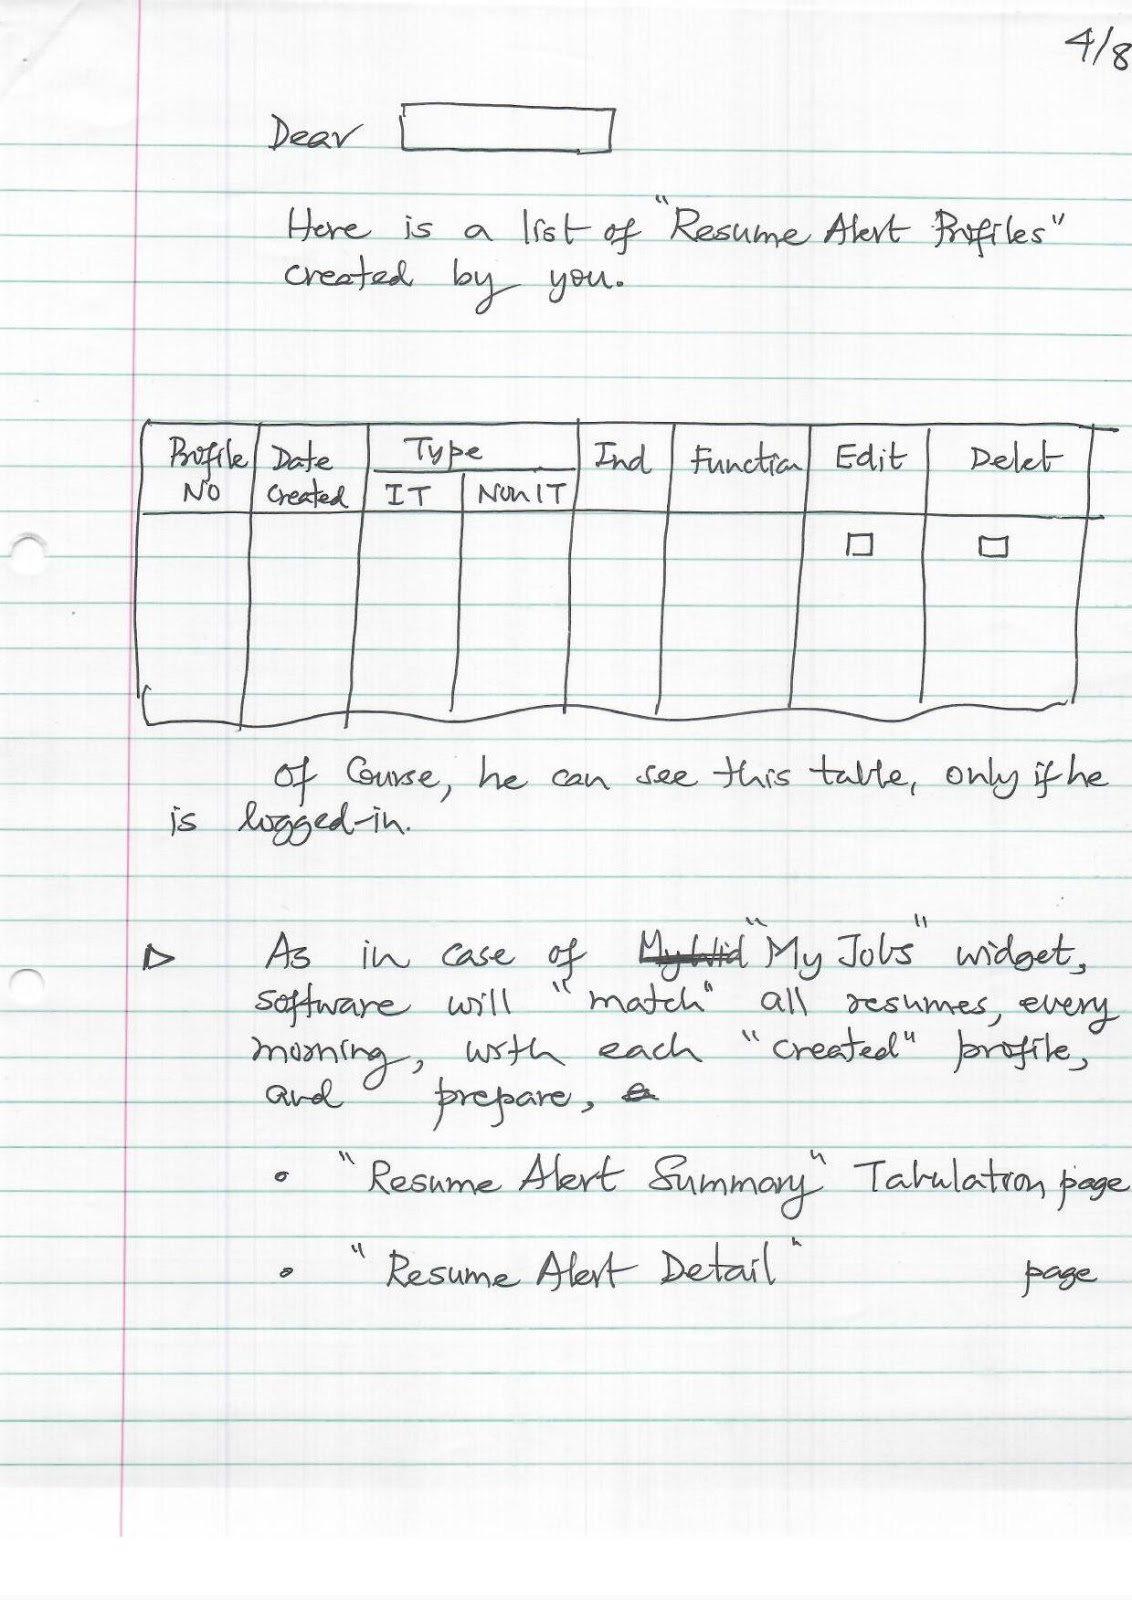 4/8
Dear
Here is a list of "Resume Alert Profiles"
created by you.
Profile No Date Created Type IT Non IT Ind Function Edit Delet
Of Course, he can see this table, only if he
is logged-in.
As in case of "My Jobs" widget,
software will "match" all resumes, every
morning, with each "created" profile,
and prepare,
"Resume Alert Summary" Tabulation page
"Resume Alert Detail" page